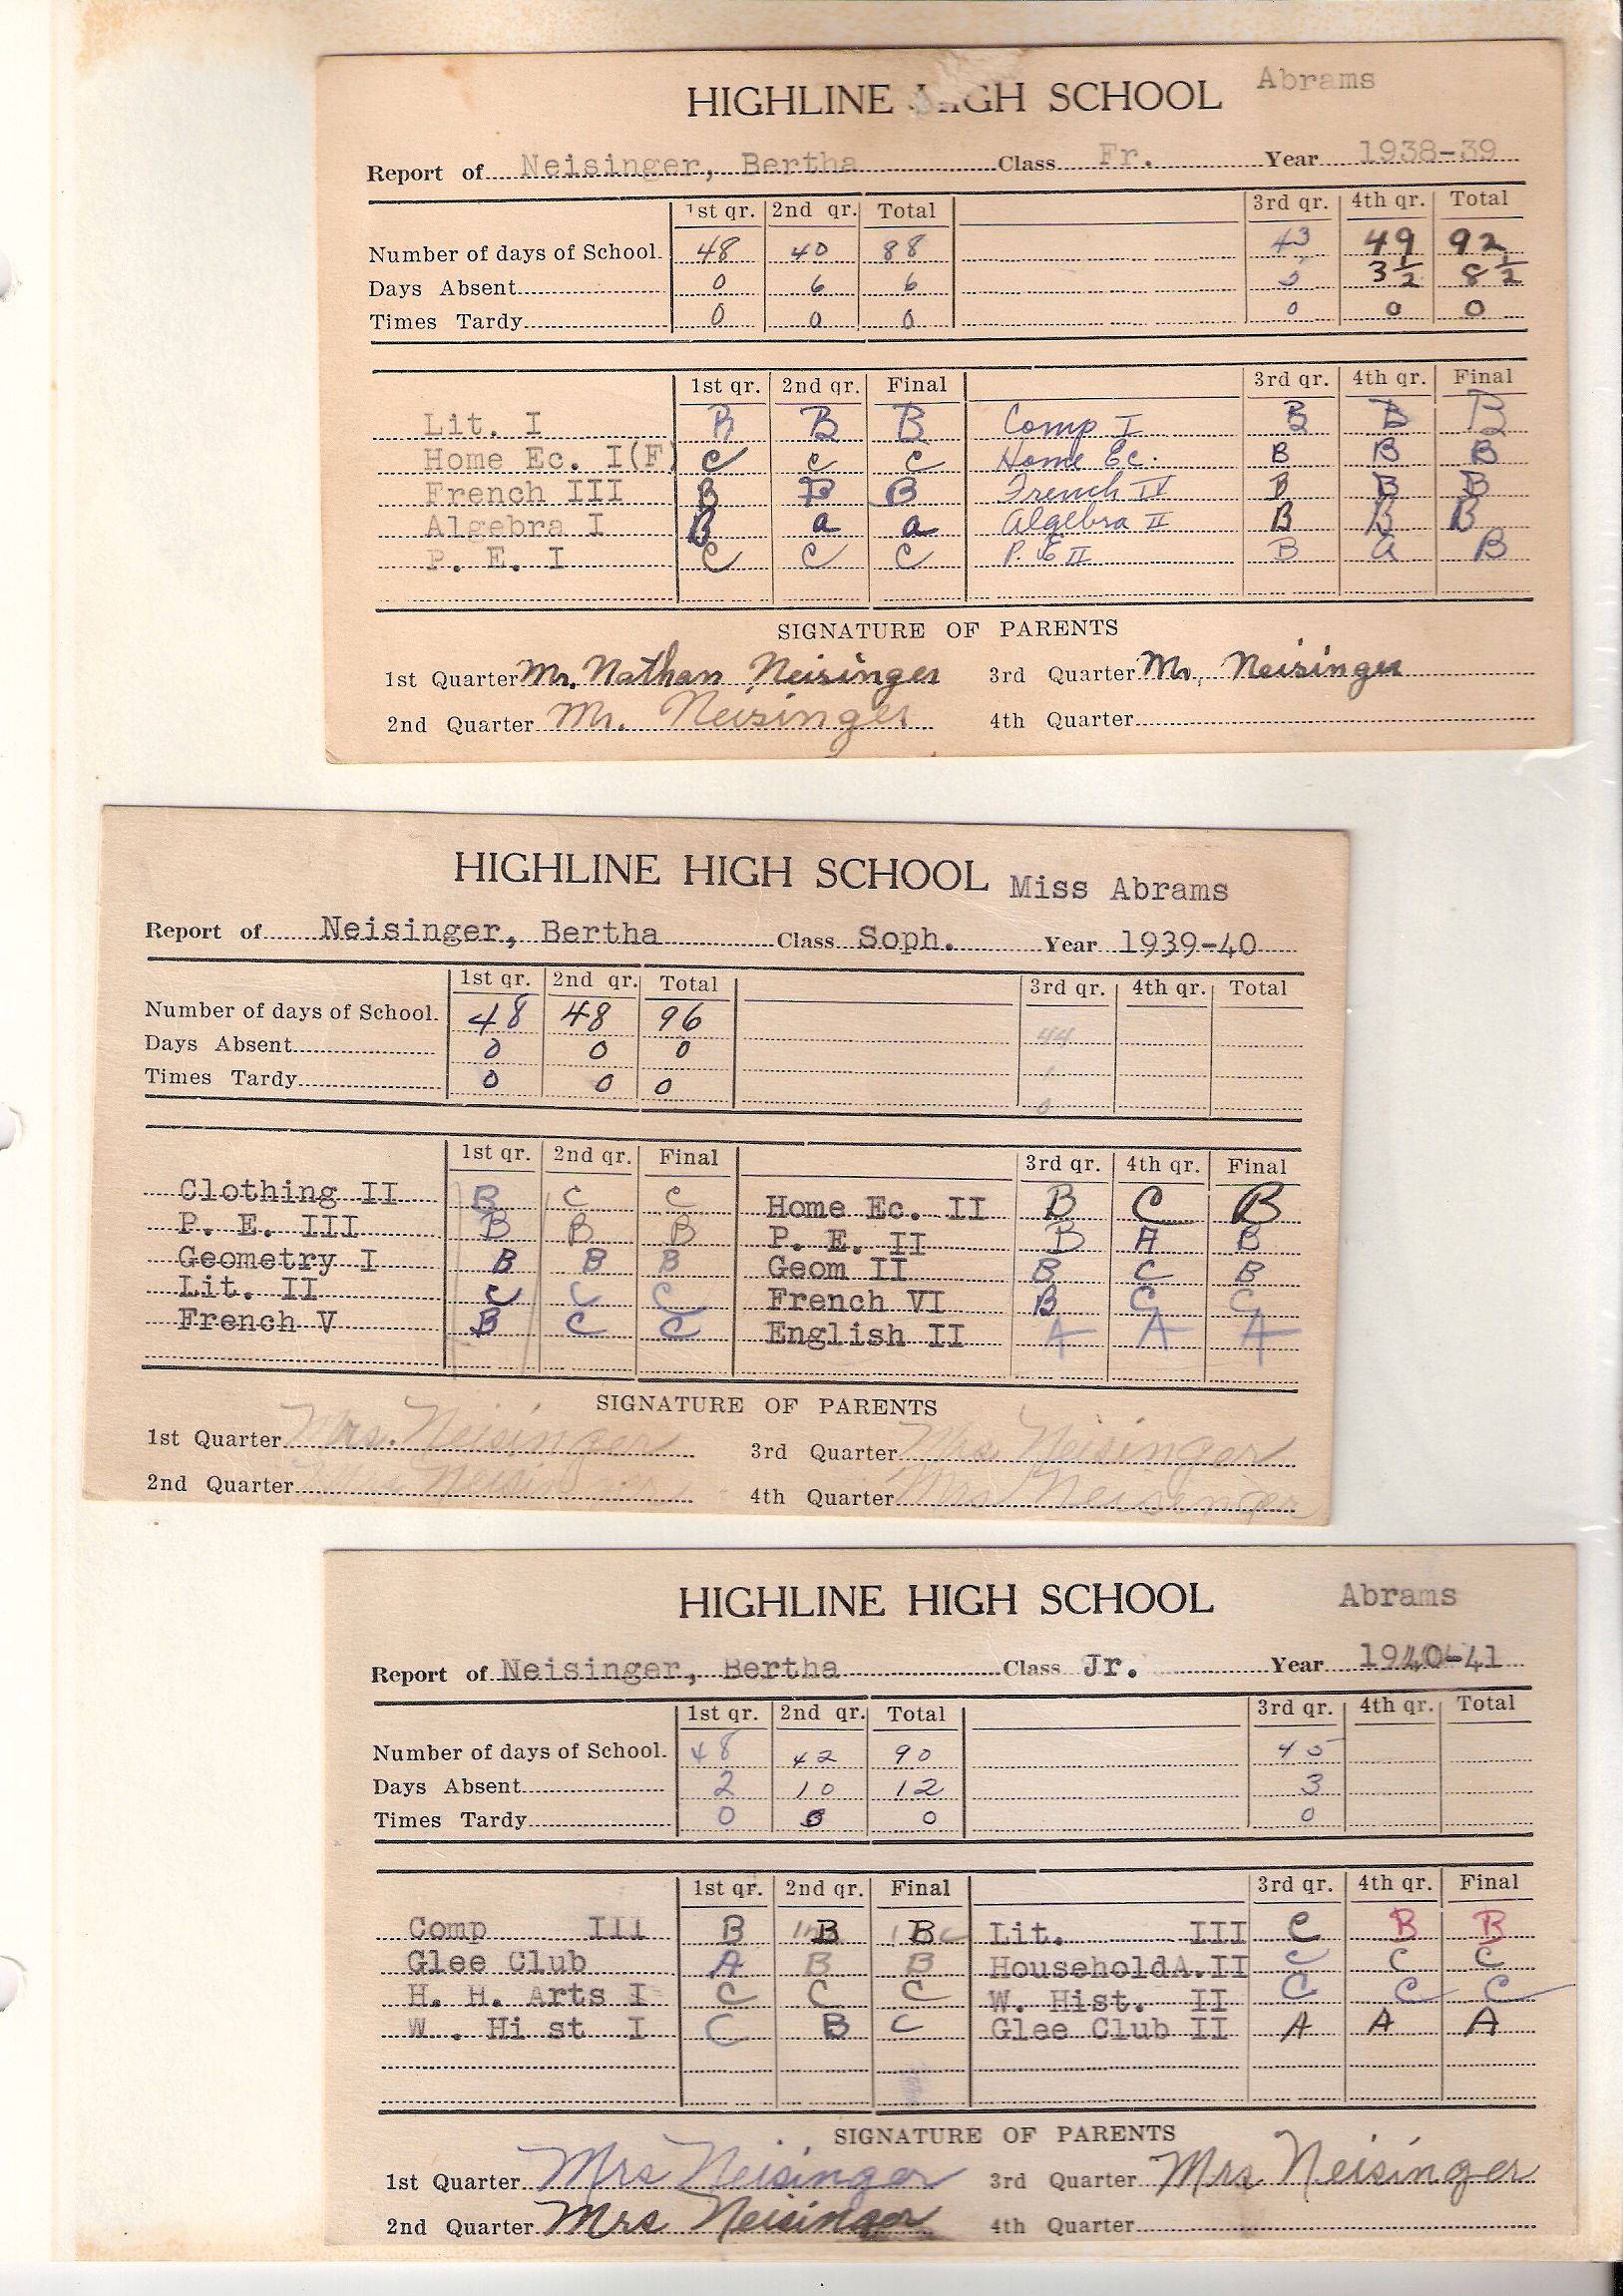 HIGHLINE HIGH SCHOOL Abrams
Report of Neisinger, Bertha Class Fr. Year 1938-39
1st qr. 2nd qr. Total 3rd qr. 4th qr. Total
Number of days of School. 48 40 88 43 49 92
Days Absent 0 6 6 5 3½ 8½
Times Tardy 0 0 0 0 0 0
1st qr. 2nd qr. Final 3rd qr. 4th qr. Final
Lit. I B B B Comp I B B B
Home Ec. I(F) C C C Home Ec. B B B
French III B B B French IV B B B
Algebra I B a a Algebra II B B B
P. E. I C C C P. E II B a B
SIGNATURE OF PARENTS
1st Quarter Mr. Nathan Neisinger 3rd Quarter Mr. Neisinger
2nd Quarter Mr. Neisinger 4th Quarter
HIGHLINE HIGH SCHOOL Miss Abrams
Report of Neisinger, Bertha Class Soph. Year 1939-40
1st qr. 2nd qr. Total 3rd qr. 4th qr. Total
Number of days of School. 48 48 96 44
Days Absent 0 0 0
Times Tardy 0 0 0 0
1st qr. 2nd qr. Final 3rd qr. 4th qr. Final
Clothing II B C C Home Ec. II B C B
P. E. III B B B P. E. II B A B
Geometry I B B B Geom II B C B
Lit. II C C C French VI B C C
French V B C C English II A A A
SIGNATURE OF PARENTS
1st Quarter Mrs. Neisinger 3rd Quarter Mrs Neisinger
2nd Quarter Mrs Neisinger 4th Quarter Mrs Neisinger
HIGHLINE HIGH SCHOOL Abrams
Report of Neisinger, Bertha Class Jr. Year 1940-41
1st qr. 2nd qr. Total 3rd qr. 4th qr. Total
Number of days of School. 48 42 90 45
Days Absent 2 10 12 3
Times Tardy 0 0 0 0
1st qr. 2nd qr. Final 3rd qr. 4th qr. Final
Comp III B B B Lit. III C B B
Glee Club A B B HouseholdA.II C C C
H. H. Arts I C C C W. Hist. II C C C
W. Hist I C B C Glee Club II A A A
SIGNATURE OF PARENTS
1st Quarter Mrs Neisinger 3rd Quarter Mrs. Neisinger
2nd Quarter Mrs Neisinger 4th Quarter